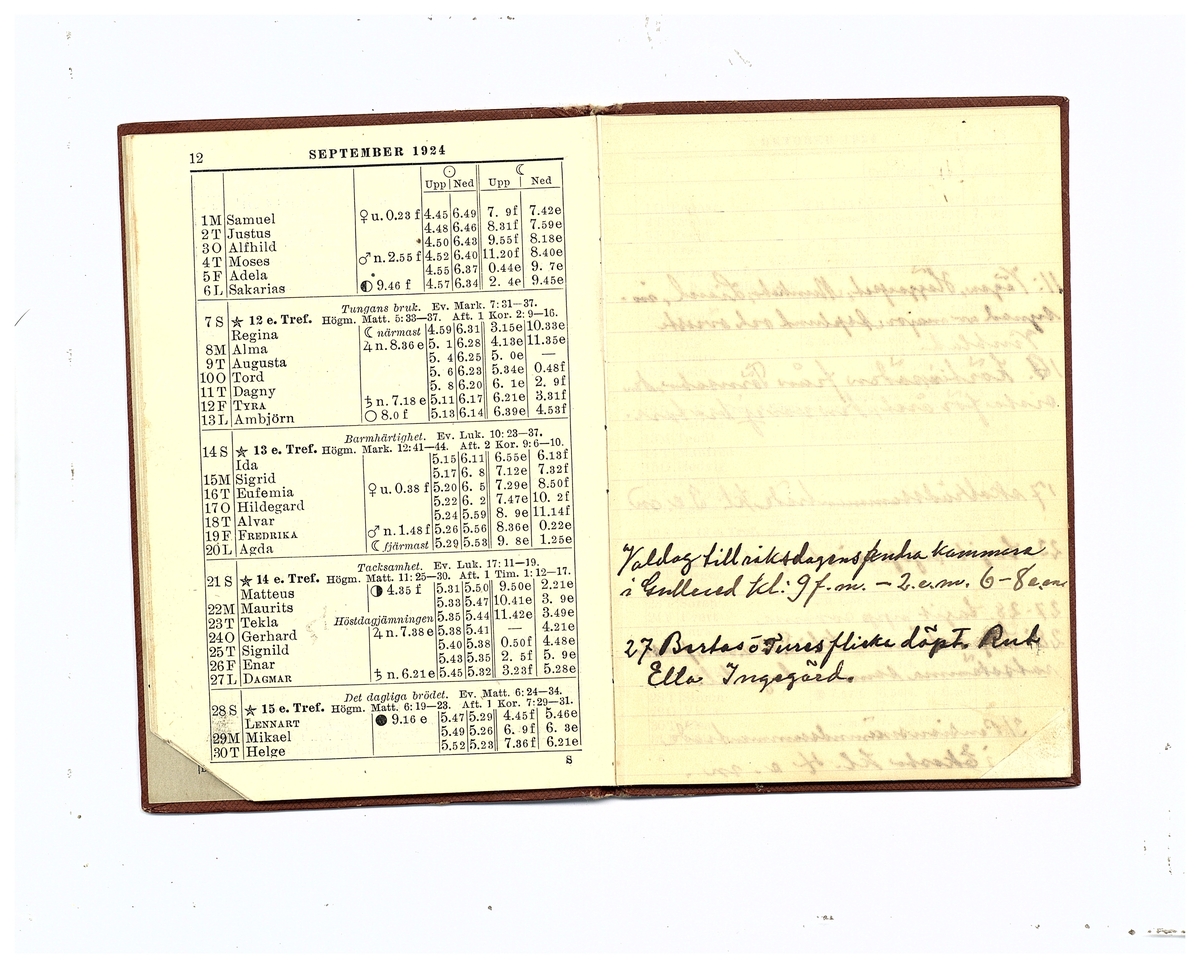 12 SEPTEMBER 1924
☉ ☾
Upp Ned Upp Ned
1 M Samuel ♀ u. 0.23 f 4.45 6.49 7. 9f 7.42e
2 T Justus 4.48 6.46 8.31f 7.59e
3 O Alfhild 4.50 6.43 9.55f 8.18e
4 T Moses ♂ n. 2.55 f 4.52 6.40 11.20f 8.40e
5 F Adela 4.55 6.37 0.44e 9. 7e
6 L Sakarias ◐ 9.46 f 4.57 6.34 2. 4e 9.45e
Tungans bruk. Ev. Mark. 7: 31—37.
7 S ★ 12 e. Tref. Högm. Matt. 5: 33—37. Aft. 1 Kor. 2: 9—16.
Regina ☾ närmast 4.59 6.31 3.15e 10.33e
8 M Alma ♃ n. 8.36 e 5. 1 6.28 4.13e 11.35e
9 T Augusta 5. 4 6.25 5. 0e —
10 O Tord 5. 6 6.23 5.34e 0.48f
11 T Dagny 5. 8 6.20 6. 1e 2. 9f
12 F TYRA ♄ n. 7.18 e 5.11 6.17 6.21e 3.31f
13 L Ambjörn ○ 8.0 f 5.13 6.14 6.39e 4.53f
Barmhärtighet. Ev. Luk. 10: 23—37.
14 S ★ 13 e. Tref. Högm. Mark. 12: 41—44. Aft. 2 Kor. 9: 6—10.
Ida 5.15 6.11 6.55e 6.13f
15 M Sigrid 5.17 6. 8 7.12e 7.32f
16 T Eufemia ♀ u. 0.38 f 5.20 6. 5 7.29e 8.50f
17 O Hildegard 5.22 6. 2 7.47e 10. 2f
18 T Alvar 5.24 5.59 8. 9e 11.14f
19 F FREDRIKA ♂ n. 1.48 f 5.26 5.56 8.36e 0.22e
20 L Agda ☾ fjärmast 5.29 5.53 9. 8e 1.25e
Tacksamhet. Ev. Luk. 17: 11—19.
21 S ★ 14 e. Tref. Högm. Matt. 11: 25—30. Aft. 1 Tim. 1: 12—17.
Matteus ◑ 4.35 f 5.31 5.50 9.50e 2.21e
22 M Maurits 5.33 5.47 10.41e 3. 9e
23 T Tekla Höstdagjämningen 5.35 5.44 11.42e 3.49e
24 O Gerhard ♃ n. 7.38 e 5.38 5.41 — 4.21e
25 T Signild 5.40 5.38 0.50f 4.48e
26 F Enar 5.43 5.35 2. 5f 5. 9e
27 L DAGMAR ♄ n. 6.21 e 5.45 5.32 3.23f 5.28e
Det dagliga brödet. Ev. Matt. 6: 24—34.
28 S ★ 15 e. Tref. Högm. Matt. 6: 19—23. Aft. 1 Kor. 7: 29—31.
LENNART ● 9.16 e 5.47 5.29 4.45f 5.46e
29 M Mikael 5.49 5.26 6. 9f 6. 3e
30 T Helge 5.52 5.23 7.36f 6.21e
S
Valdag till riksdagens andra kammare
i Gullered kl: 9 f.m. – 2.e.m. 6–8 e.m
27 Bertas o Tures flicka döpt. Rut
Ella Ingegärd.